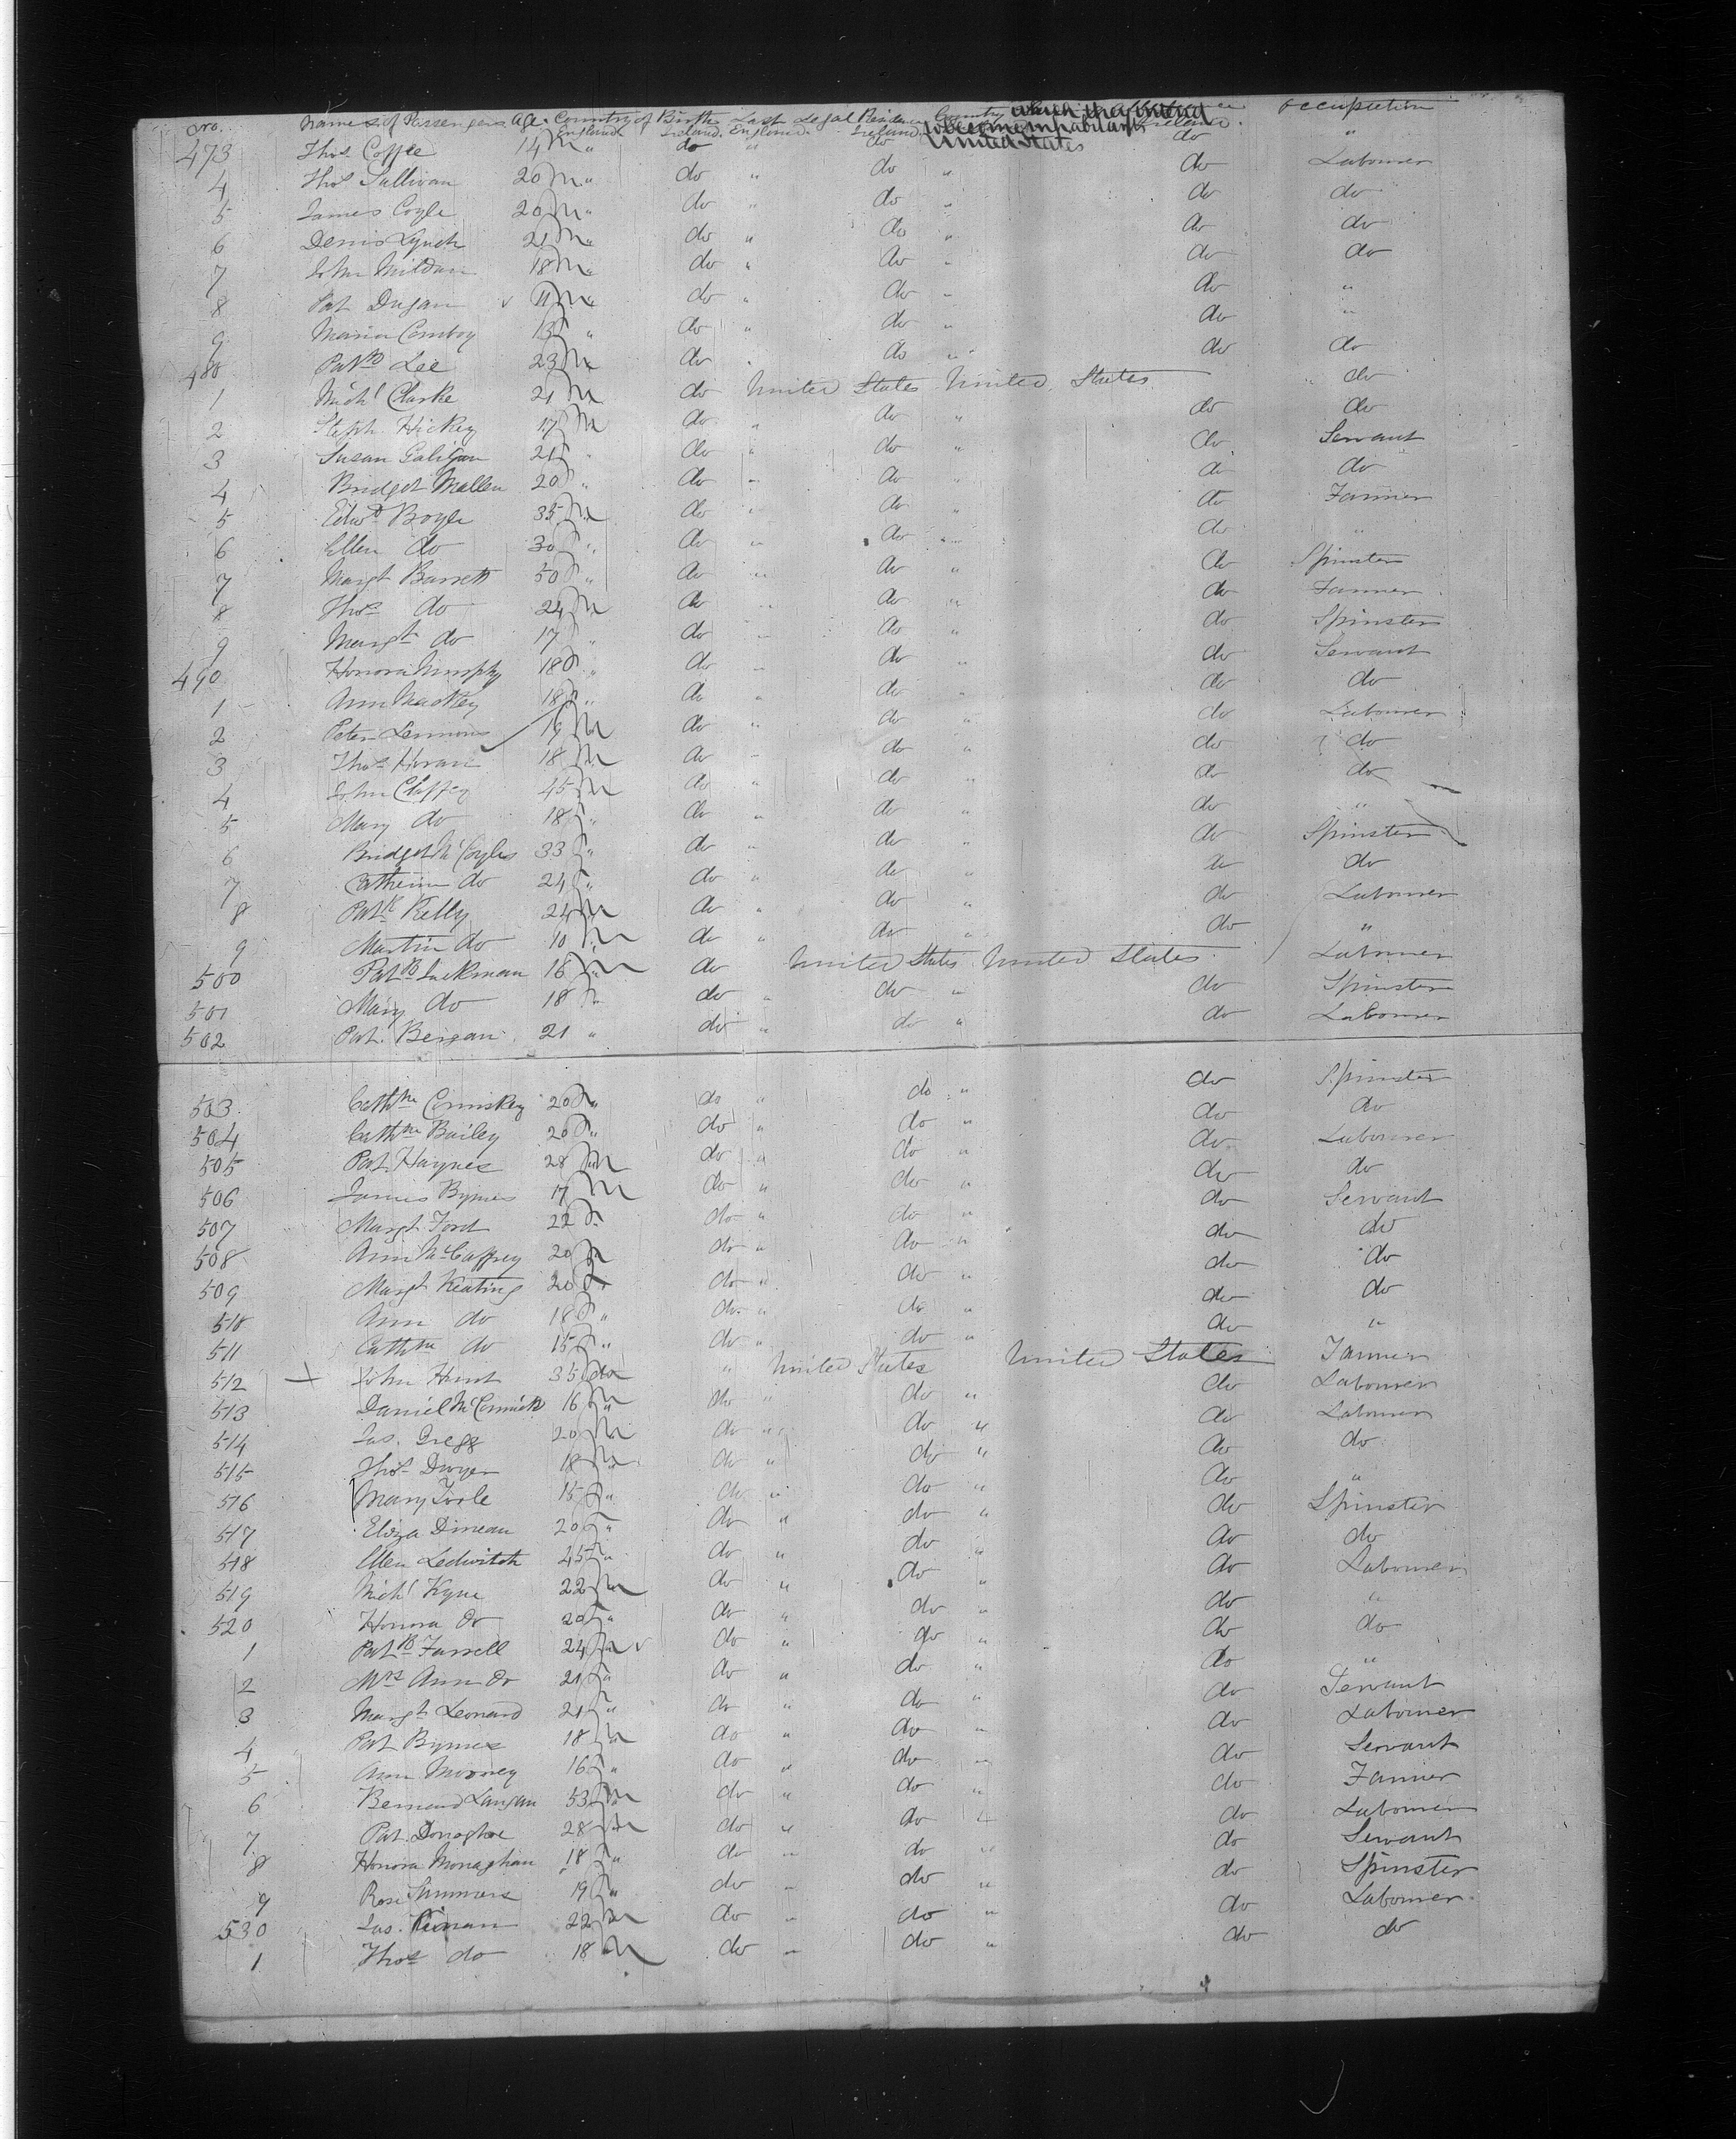 No. Names of Passengers Age Country of Birth Last Legal Residence Country which they intend Occupation
England Ireland England Ireland to become inhabitants
473 Thos. Coffee 14 M " do " do United States do "
4 Thos Sullivan 20 M " do " do " do Labourer
5 James Coyle 20 M " do " do " do do
6 Denis Lynch 21 M " do " do " do do
7 John Mildan 18 M " do " do " do do
8 Pat Dugan 11 M " do " do " do "
9 Maria Conboy 13 F " do " do " do "
480 Patk Lee 23 M do " do " do do
1 Michl Clarke 21 M do United States United States " do
2 Steph Hickey 17 M do " do " do do
3 Susan Galigan 21 F " do " do " do Servant
4 Bridget Mallen 20 F " do " do " do do
5 Edwd Boyle 35 M do " do " do Farmer
6 Ellen do 30 F " do " do " do "
7 Margt Barrett 50 F " do " do " do Spinster
8 Thos do 24 M do " do " do Farmer
9 Margt do 17 " do " do " do Spinster
490 Honora Murphy 18 F " do " do " do Servant
1 Ann Mackey 18 F " do " do " do do
2 Peter Lemmons 19 M do " do " do Labourer
3 Thos Horan 18 M do " do " do do
4 John Claffey 45 M do " do " do do
5 Mary do 18 F " do " do " do "
6 Bridget McCoyles 33 F " do " do " do Spinster
7 Catherine do 24 F " do " do " do do
8 Patk Kelly 24 M do " do " do Labourer
9 Martin do 10 M do " do " do "
500 Patk Luckman 16 M do United States United States Labourer
501 Mary do 18 F " do " do " do Spinster
502 Pat. Bergan 21 " do " do " do Labourer
503 Cathne Comiskey 20 F " do " do " do Spinster
504 Cathne Bailey 20 F " do " do " do do
505 Pat Haynes 28 M do " do " do Labourer
506 James Byrnes 17 M do " do " do do
507 Margt Ford 22 F do " do " do Servant
508 Ann McCaffrey 20 F do " do " do do
509 Margt Keating 20 F do " do " do do
510 Ann do 18 F " do " do " do do
511 Cathne do 15 F " do " do " do "
512 John Hunt 35 do " United States United States Farmer
513 Daniel McCormick 16 M " do " do " do Labourer
514 Jas. Gregg 20 M do " do " do Labourer
515 Thos Dwyer 18 M do " do " do do
516 Mary Toole 15 F " do " do " do "
517 Eliza Dinean 20 F " do " do " do Spinster
518 Ellen Ledwitch 45 F " do " do " do do
519 Michl Kyne 22 M do " do " do Labourer
520 Honora Do 20 F " do " do " do "
1 Patk Farrell 24 M do " do " do do
2 Mrs Ann Do 21 F " do " do " do "
3 Margt Leonard 21 F " do " do " do Servant
4 Pat Byrnes 18 M do " do " do Labourer
5 Ann Mooney 16 F " do " do " do Servant
6 Bernard Langan 53 M do " do " do Farmer
7 Pat. Donaghoe 28 M do " do " do Labourer
8 Honora Monaghan 18 F " do " do " do Servant
9 Rose Summars 19 F " do " do " do Spinster
530 Jas. Kinan 22 M do " do " do Labourer
1 Thos do 18 M do " do " do do